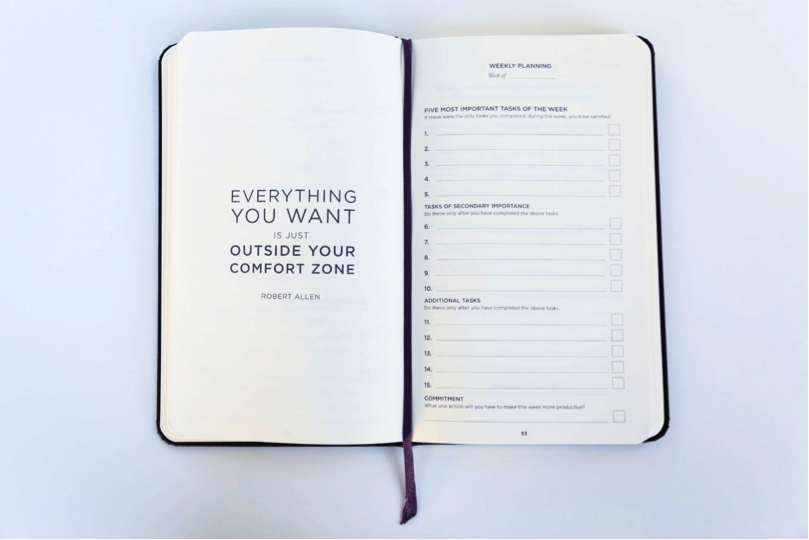 EVERYTHING
YOU WANT
IS JUST
OUTSIDE YOUR
COMFORT ZONE
ROBERT ALLEN
WEEKLY PLANNING
Week of
FIVE MOST IMPORTANT TASKS OF THE WEEK
If these were the only tasks you completed, during the week, you'd be satisfied.
1.
2.
3.
4.
5.
TASKS OF SECONDARY IMPORTANCE
Do these only after you have completed the above tasks.
6.
7.
8.
9.
10.
ADDITIONAL TASKS
Do these only after you have completed the above tasks.
11.
12.
13.
14.
15.
COMMITMENT
What one action will you take to make this week more productive?
53